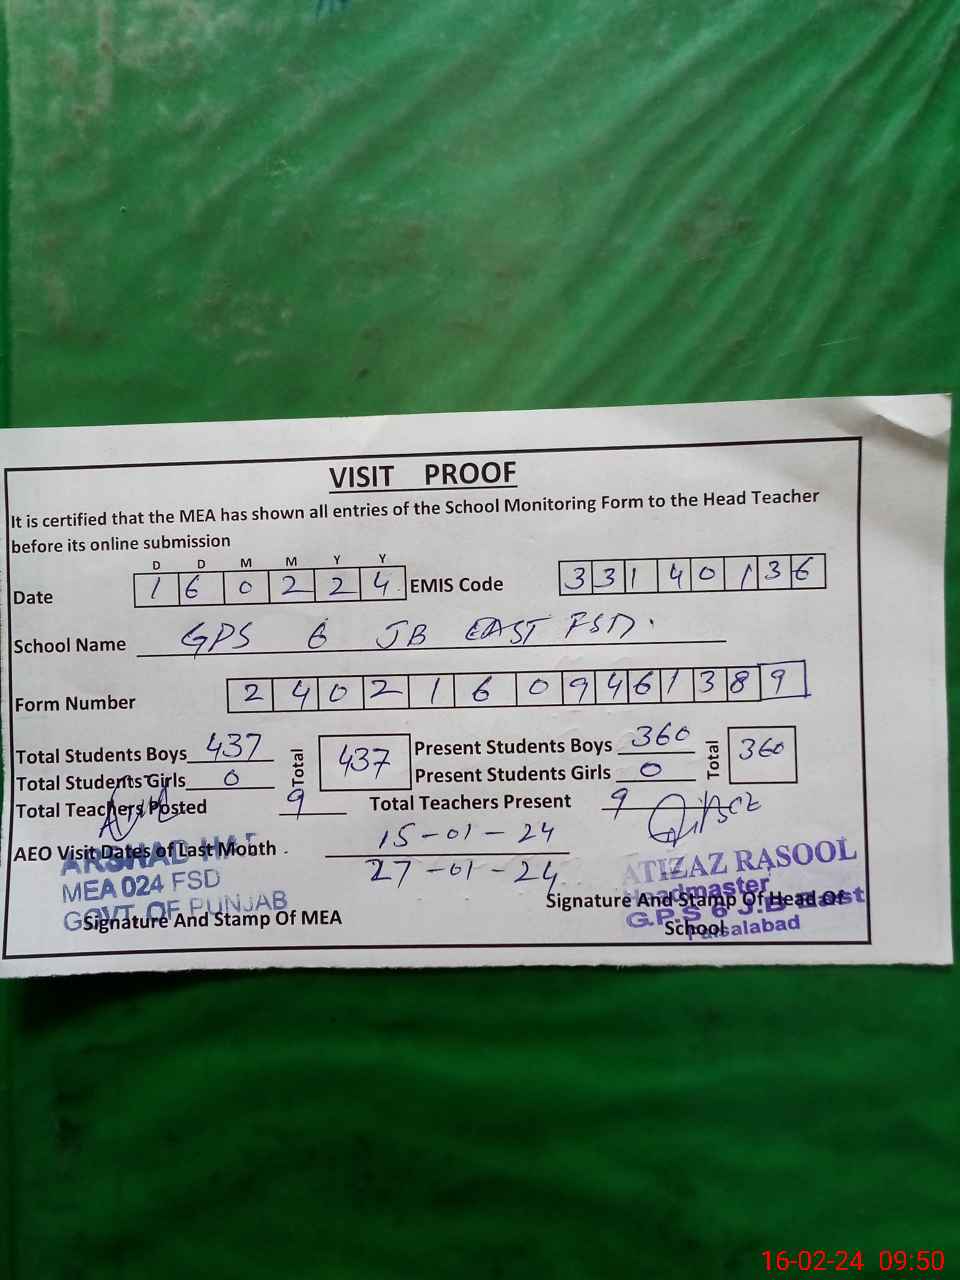 VISIT PROOF
It is certified that the MEA has shown all entries of the School Monitoring Form to the Head Teacher
before its online submission
D D M M Y Y
Date 1 6 0 2 2 4 EMIS Code 3 3 1 4 0 1 3 6
School Name GPS 6 JB EAST FSD.
Form Number 2 4 0 2 1 6 0 9 4 6 1 3 8 9
Total Students Boys 437 Total 437 Present Students Boys 360 Total 360
Total Students Girls 0 Present Students Girls 0
Total Teachers Posted 9 Total Teachers Present 9
AEO Visit Dates of Last Month 15-01-24
27-01-24
ARSHAD
MEA 024 FSD
GOVT OF PUNJAB
Signature And Stamp Of MEA
ATIZAZ RASOOL
Headmaster
G.P.S 6 J.B East
Faisalabad
Signature And Stamp Of Head Of
School
16-02-24 09:50